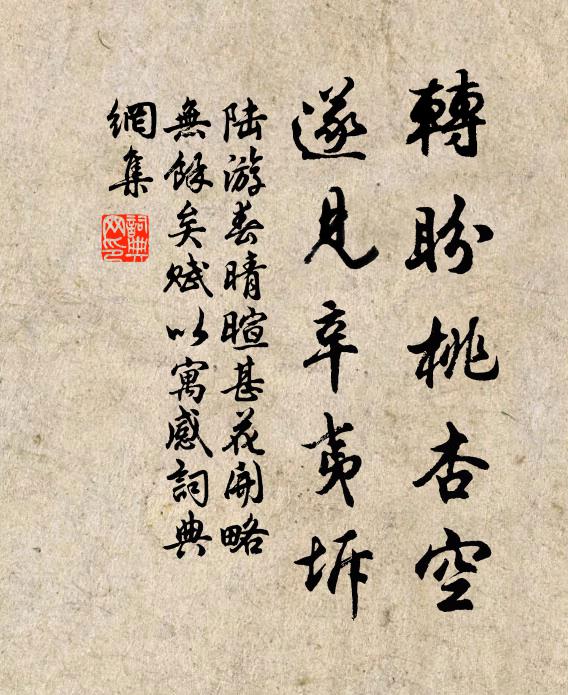 轉盼桃杏空
遂見辛夷坼
陆游春晴暄甚花開略
無餘矣赋以寓感詞典
網集
詞典
网印